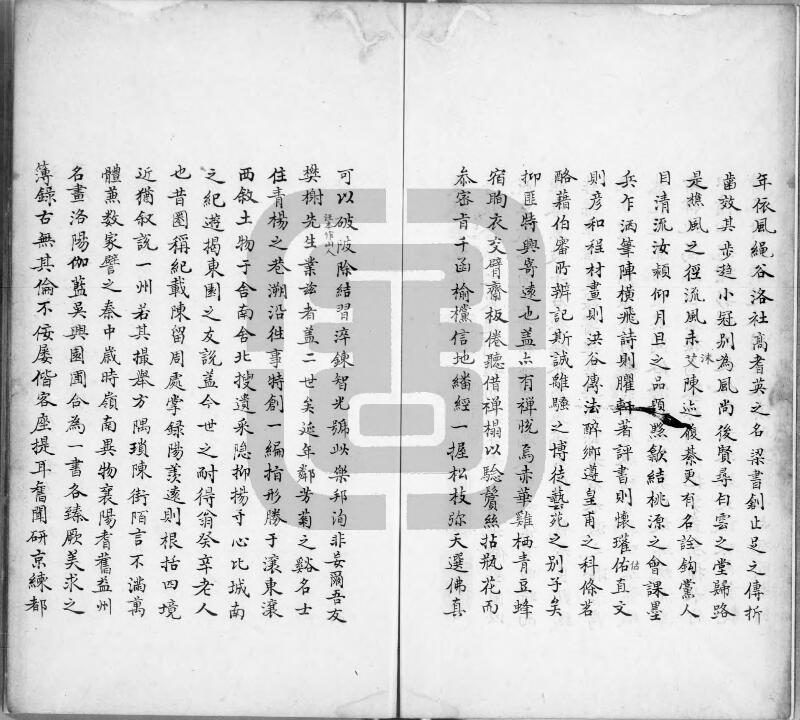 年依風繩谷洛社髙耆英之名梁書創止足之傳折
齒效其步趋小冠别為風尚後賢尋白雲之堂歸路
是樵風之徑流風未艾陳迹履綦更有名詮鉤黨人
沬
目清流汝潁仰月旦之品題黙歙結桃源之會課墨
兵乍洒筆陣橫飛詩則臞軒著評書則懷瓘佑直文
估
則彦和程材畫則洪谷傳法醉鄉遵皇甫之科條茗
酪藉伯審所辨記斯誠雖騷之博徒藝苑之别子矣
抑匪特興寄逺也盖亦有禪悅焉赤華雞栖青豆蜂
宿昫衣交臂齋板倦聽借禪榻以驗鬢絲拈瓶花而
叅密旨千函榆欓信地繙經一握松枝弥天選佛真
可以破陂除結習淬鍊智光號此樂邦洵非妄爾吾友
樊榭先生業兹者盖二世矣延年鄰芳菊之谿名士
祖本作山人
住青楊之巷溯沿往事特創一編指形勝于瀼東瀼
西敘土物于舍南舍北搜遺采隐抑揚手心比城南
之紀遊揭東園之友説盖今世之耐得翁癸辛老人
也昔圈稱紀載陳留周處掌録陽羡逺則根括四境
近猶叙説一州若其撮舉方隅瑣陳街陌言不滿萬
體兼数家譬之秦中歳時嶺南異物襄陽耆舊益州
名畫洛陽伽藍吳興園圃合為一書各臻厥美求之
薄録古無其倫不佞屡偕客座提耳奮聞研京練都